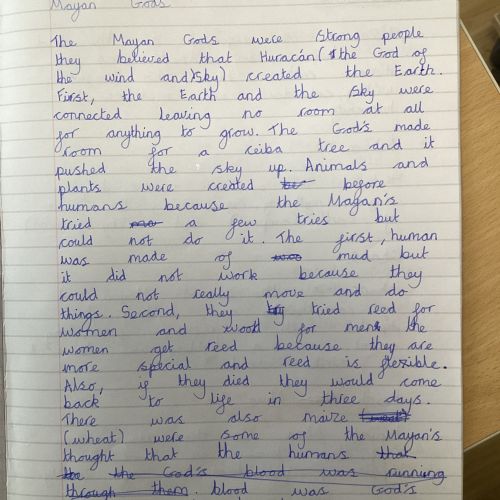 Mayan Gods
The Mayan Gods were strong people
they believed that Huracán (the God of
the wind and sky) created the Earth.
First, the Earth and the sky were
connected leaving no room at all
for anything to grow. The God's made
room for a ceiba tree and it
pushed the sky up. Animals and
plants were created before
humans because the Mayan's
tried a few tries but
could not do it. The first, human
was made of mud but
it did not work because they
could not really move and do
things. Second, they tried reed for
women and wood for men the
women get reed because they are
more special and reed is flexible.
Also, if they died they would come
back to life in three days.
There was also maize
(wheat) were some of the Mayan's
thought that the humans that
the the God's blood was running
through them. blood was God's